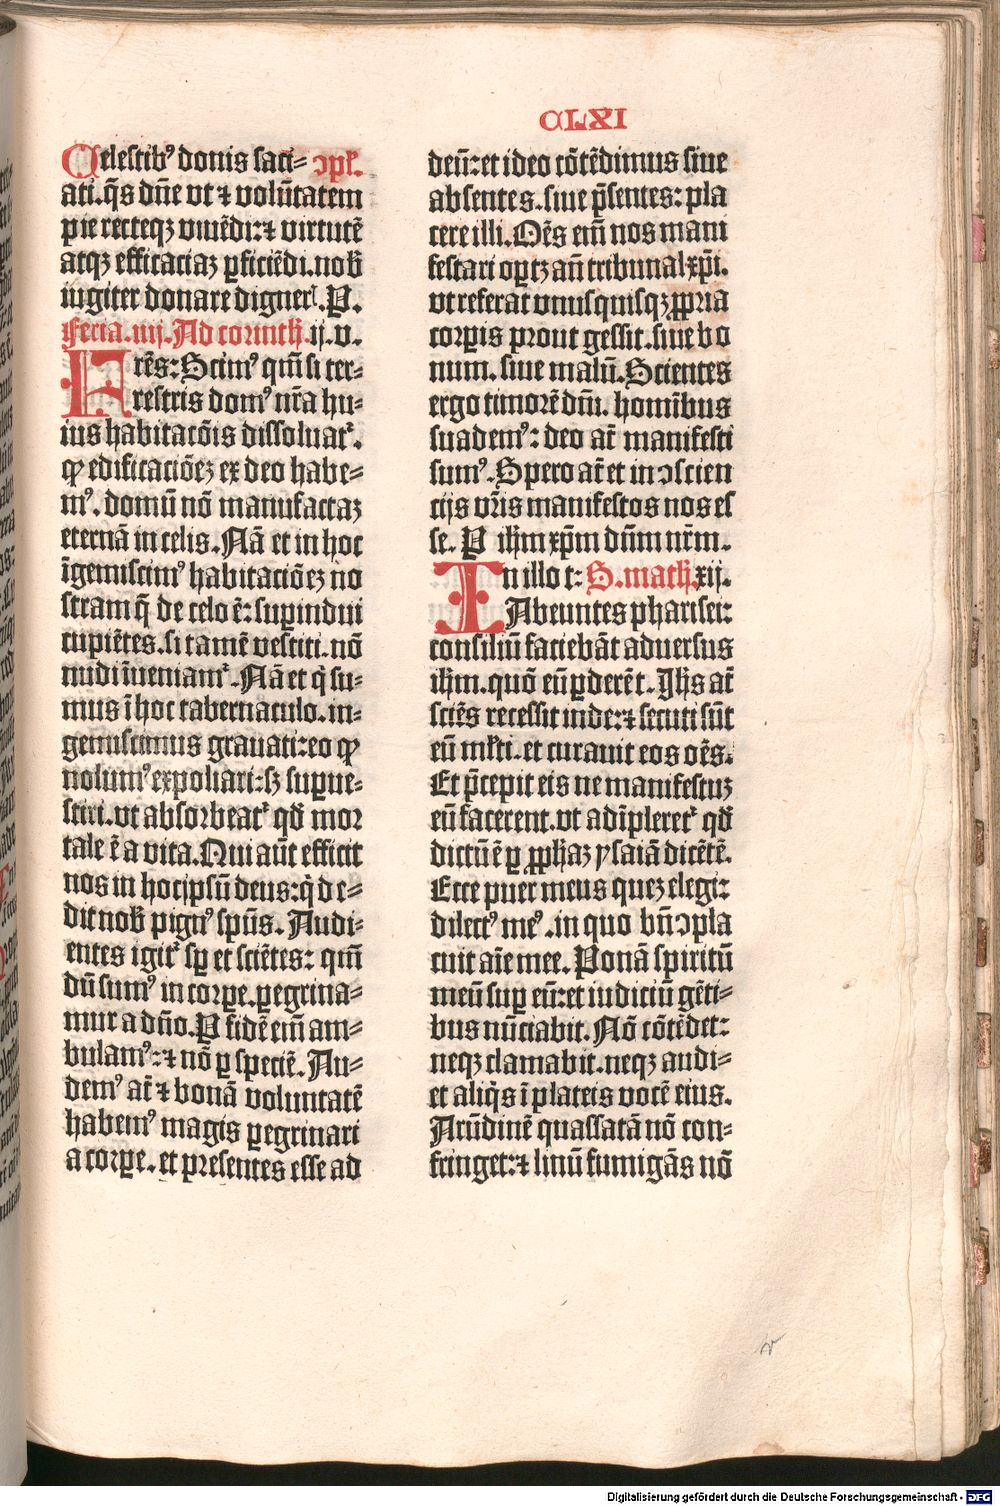 CLXI
Celestib⁹ donis saci= ↄpl̄.
ati.q̄s dn̄e vt ⁊ volūtatem
pie recteqꝫ viuēdi:⁊ virtutē
atqꝫ efficaciaꝫ ꝑficiēdi.nob̄
iugiter donare digner̄.P.
Feria.iiij.Ad corinth̄.ij.v.
Frēs:Scim⁹ qm̄ si ter=
restris dom⁹ nr̄a hu=
ius habitacōis dissoluat᷑.
ꝙ edificaciōeꝫ ex deo habe=
m⁹.domū nō manufactaꝫ
eternā in celis.Nā et in hoc
īgemiscim⁹ habitaciōeꝫ no
stram q̄ de celo ē:supindui
cupiētes.si tamē vestiti.nō
nudi īueniam᷑.Nā et q̇ su=
mus ī hoc tabernaculo.in=
gemiscimus grauati:eo ꝙ
nolum⁹ expoliari:sꝫ supue=
stiri.vt absorbeat᷑ qd̄ mor
tale ē a vita.Qui aūt efficit
nos in hocip̄sū deus:q̇ de=
dit nob̄ pign⁹ sp̄ūs.Audi=
entes igit᷑ sꝑ et sciētes: qm̄
dū sum⁹ in corꝑe.ꝑegrina=
mur a dn̄o.P fidē eīm am=
bulam⁹:⁊ nō ꝑ speciē.Au=
dem⁹ at̄ ⁊ bonā voluntatē
habem⁹ magis ꝑegrinari
a corꝑe.et presentes esse ad
deū:et ideo cōtēdimus siue
absentes.siue p̄sentes:pla
cere illi.Oēs eīm nos mani
festari optꝫ an̄ tribunal xp̄i.
vt referat vnusquisqꝫ ꝓpria
corpis prout gessit.siue bo
num.siue malū.Scientes
ergo timorē dn̄i.homībus
suadem⁹:deo at̄ manifesti
sum⁹.Spero at̄ et in ↄscien
cijs vr̄is manifestos nos es
se.P ih̄m xp̄m dn̄m nr̄m.
In illo t: S.math̄.xij.
Abeuntes pharisei:
consiliū faciebāt aduersus
ih̄m.quō eū ꝑderēt.Jh̄s at̄
sciēs recessit inde:⁊ secuti sūt
eū ml̄ti.et curauit eos oēs.
Et p̄cepit eis ne manifestuꝫ
eū facerent.vt adīpleret᷑ qd̄
dictū ē ꝑ ꝓph̄aꝫ ysaiā dicētē.
Ecce puer meus queꝫ elegi:
dilect⁹ me⁹.in quo bn̄ ↄpla
cuit aīe mee.Ponā spiritū
meū sup eū:et iudiciū gēti=
bus nūciabit.Nō cōtēdet:
neqꝫ clamabit.neqꝫ audi=
et aliq̇s ī plateis vocē eius.
Arūdinē quassatā nō con=
fringet:⁊ linū fumigās nō
Digitalisierung gefördert durch die Deutsche Forschungsgemeinschaft - DFG